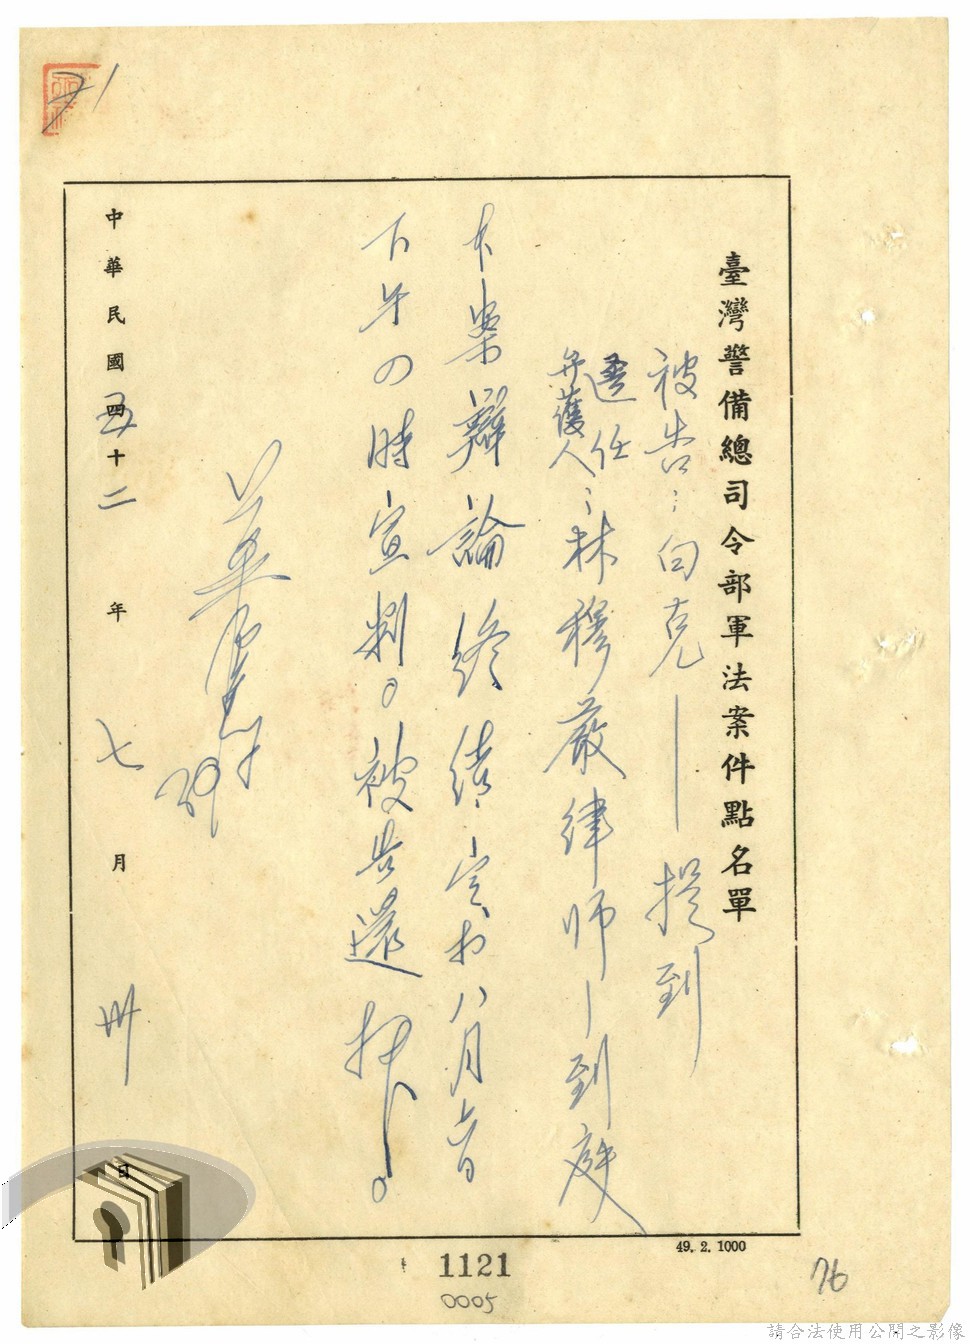 臺灣警備總司令部軍法案件點名單
被告:白克—提到
選任
辯護人:林穆嚴律師—到庭
本案辯論終結,定於八月六日
下午四時宣判。被告還押。
29
中華民國五十二年七月卅日
71
49. 2. 1000
1121
0005
76
請合法使用公開之影像